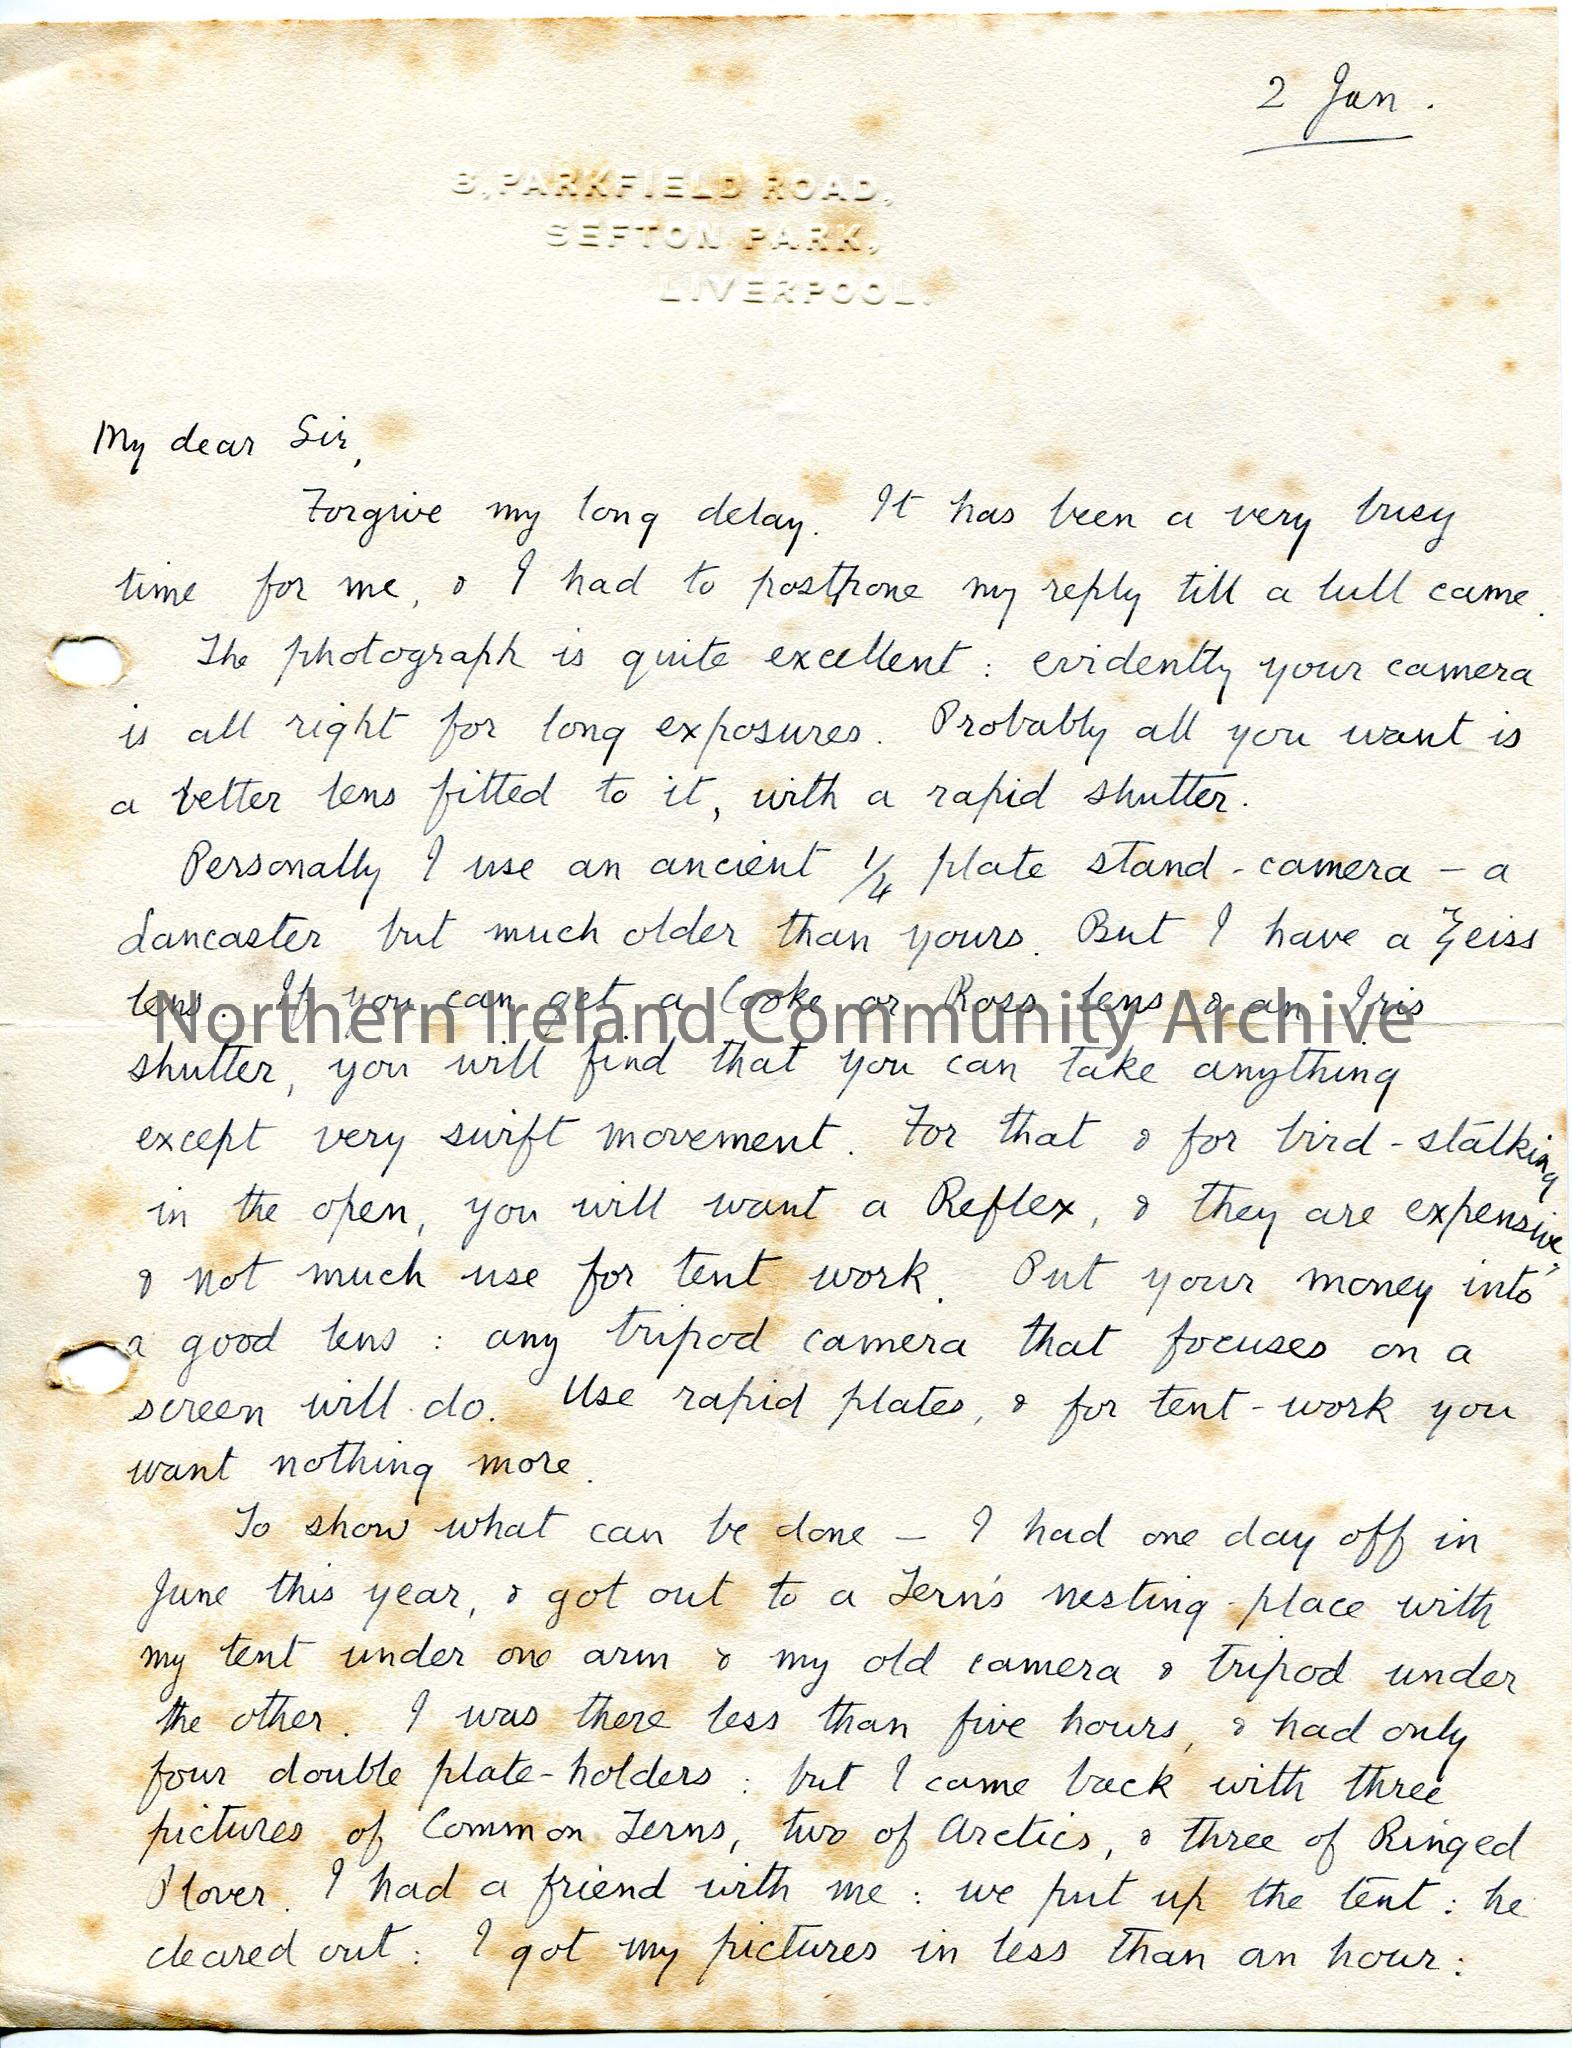 2 Jan.
8, PARKFIELD ROAD,
SEFTON PARK,
LIVERPOOL.
My dear Sir,
Forgive my long delay. It has been a very busy
time for me, & I had to postpone my reply till a lull came.
The photograph is quite excellent: evidently your camera
is all right for long exposures. Probably all you want is
a better lens fitted to it, with a rapid shutter.
Personally I use an ancient 1/4 plate stand-camera – a
Lancaster but much older than yours. But I have a Zeiss
lens. If you can get a Cooke or Ross lens & an Iris
Northern Ireland Community Archive
shutter, you will find that you can take anything
except very swift movement. For that & for bird-stalking
in the open, you will want a Reflex, & they are expensive
& not much use for tent work. Put your money into
a good lens: any tripod camera that focuses on a
screen will do. Use rapid plates, & for tent-work you
want nothing more.
To show what can be done – I had one day off in
June this year, & got out to a Tern's nesting-place with
my tent under one arm & my old camera & tripod under
the other. I was there less than five hours, & had only
four double plate-holders: but I came back with three
pictures of Common Terns, two of Arctics, & three of Ringed
Plover. I had a friend with me: we put up the tent: he
cleared out: I got my pictures in less than an hour: